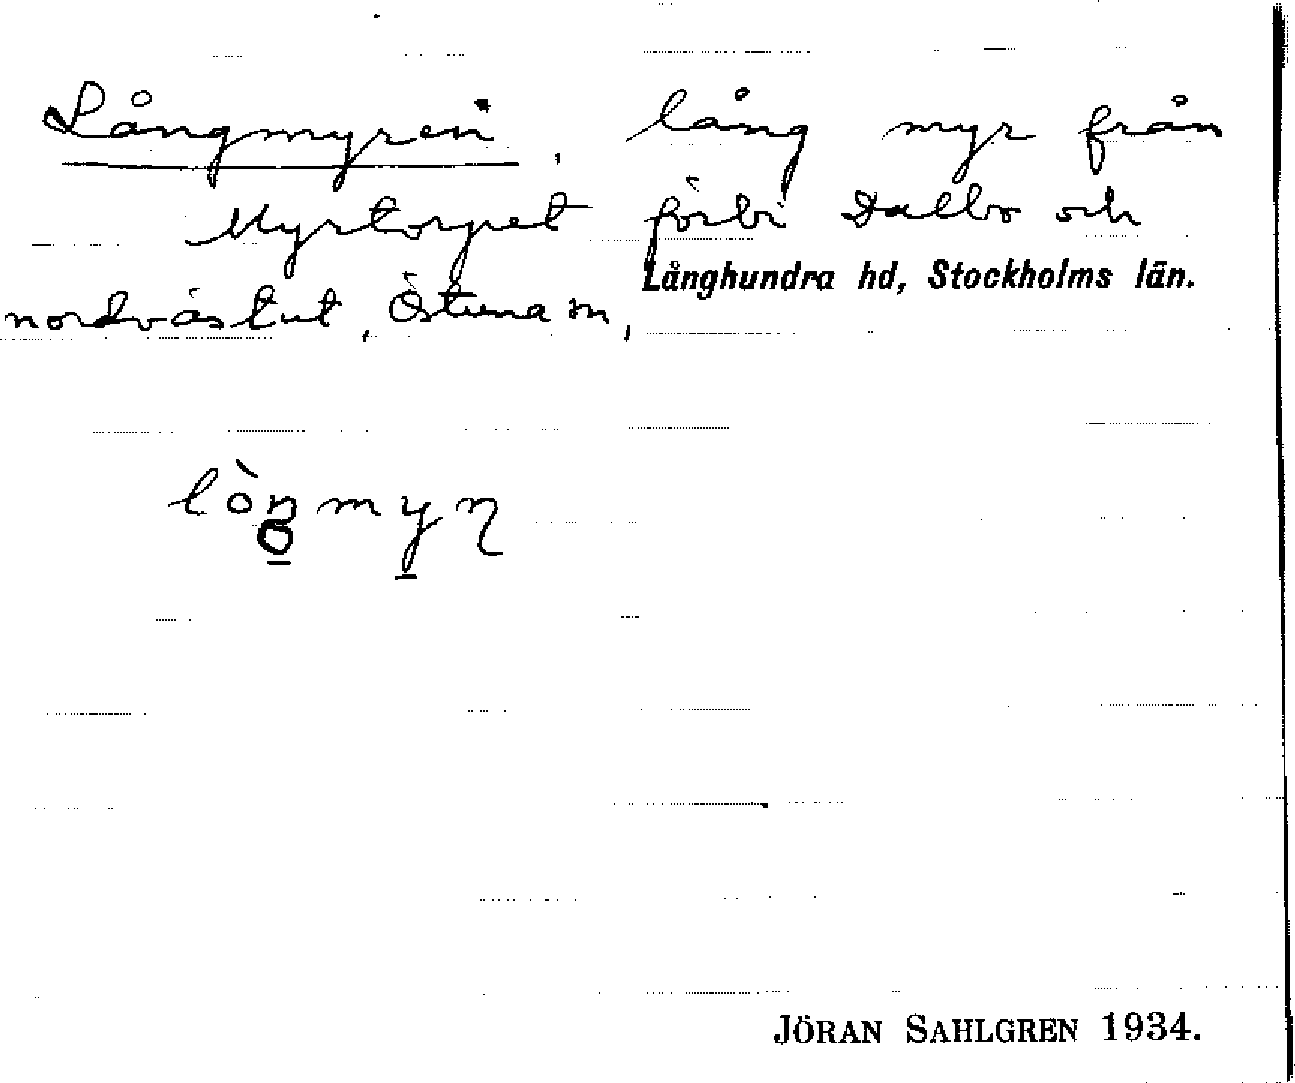 Långmyren, lång myr från
Myrtorpet förbi Dalbo och
Långhundra hd, Stockholms län.
nordväst ut, Östuna sn,
lòŋmyn
JÖRAN SAHLGREN 1934.